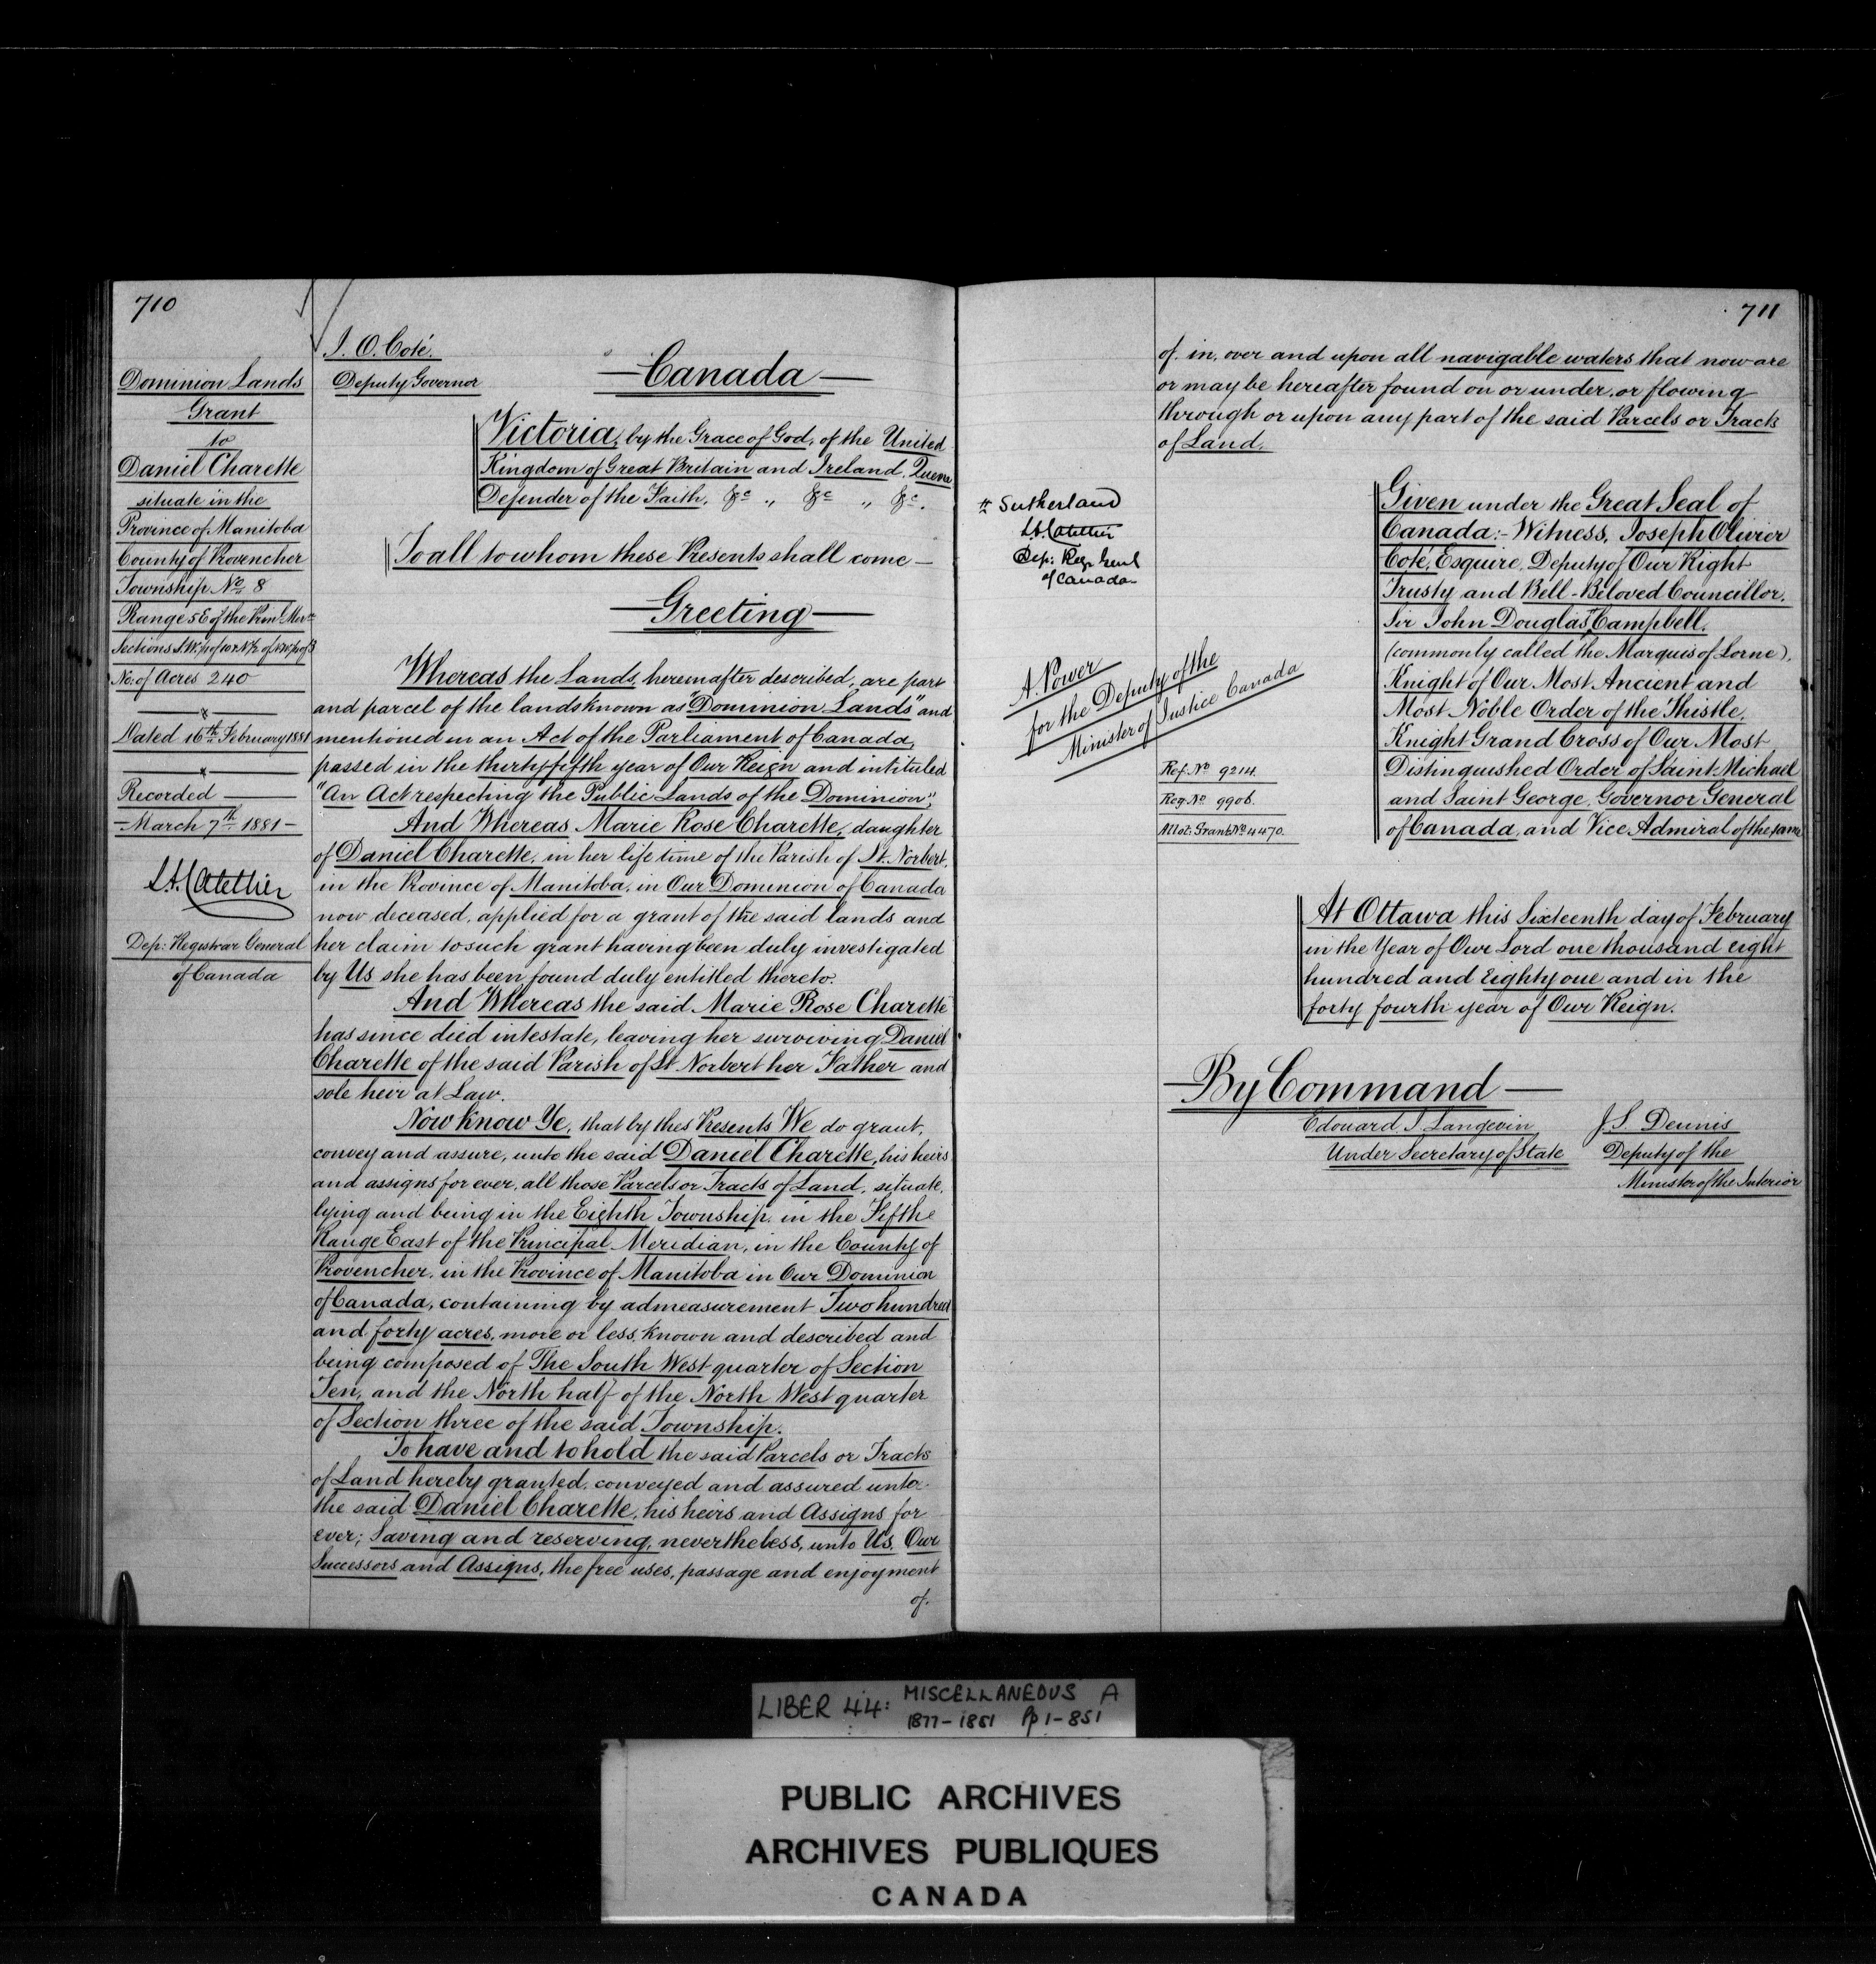 710
Dominion Lands
Grant
to
Daniel Charette
situate in the
Province of Manitoba
County of Provencher
Township No 8
Range 5 E of the Prin Mer
Sections S.W. ¼ of 10 & N ½ of N.W. ¼ of 3
No. of Acres 240
Dated 16th February 1881
Recorded
March 7th 1881
L.A. Catellier
Dep: Registrar General
of Canada
J. O. Coté.
Deputy Governor
Canada
Victoria, by the Grace of God, of the United
Kingdom of Great Britain and Ireland, Queen
Defender of the Faith, &c „ &c „ &c.
To all to whom these Presents shall come
Greeting
Whereas the Lands, hereinafter described, are part
and parcel of the lands known as "Dominion Lands" and
mentioned in an Act of the Parliament of Canada,
passed in the thirty fifth year of Our Reign and intituled
"An Act respecting the Public Lands of the Dominion";
And Whereas Marie Rose Charette, daughter
of Daniel Charette, in her life time of the Parish of St. Norbert,
in the Province of Manitoba, in Our Dominion of Canada
now deceased, applied for a grant of the said lands and
her claim to such grant having been duly investigated
by Us she has been found duly entitled thereto.
And Whereas the said Marie Rose Charette
has since died intestate, leaving her surviving Daniel
Charette of the said Parish of St Norbert her Father and
sole heir at Law.
Now Know Ye, that by thes Presents We do grant,
convey and assure, unto the said Daniel Charette, his heirs
and assigns for ever, all those Parcels or Tracts of Land, situate,
lying and being in the Eighth Township, in the Fifthe
Range East of the Principal Meridian, in the County of
Provencher, in the Province of Manitoba in Our Dominion
of Canada, containing by admeasurement Two hundred
and forty acres, more or less, known and described and
being composed of The South West quarter of Section
Ten, and the North half of the North West quarter
of Section three of the said Township.
To have and to hold the said Parcels or Tracts
of Land hereby granted, conveyed and assured unto
the said Daniel Charette, his heirs and Assigns for
ever; Saving and reserving, nevertheless, unto Us, Our
Successors and Assigns, the free uses, passage and enjoyment
of.
711
of, in, over and upon all navigable waters that now are
or may be hereafter found on or under, or flowing
through or upon any part of the said Parcels or Tracts
of Land.
Sutherland
L.A. Catellier
Dep: Reg. Genl
of Canada
A. Power
for the Deputy of the
Minister of Justice Canada
Ref. No 9214.
Reg. No 9906.
Allot: Grant No 4470.
Given under the Great Seal of
Canada:- Witness, Joseph Olivier
Coté, Esquire, Deputy of Our Right
Trusty and Bell-Beloved Councillor.
Sir John Douglas Campbell.
(commonly called the Marquis of Lorne),
Knight of Our Most Ancient and
Most Noble Order of the Thistle,
Knight Grand Cross of Our Most
Distinguished Order of Saint Michael
and Saint George, Governor General
of Canada, and Vice Admiral of the same
At Ottawa this Sixteenth day of February
in the Year of Our Lord one thousand eight
hundred and Eighty one and in the
forty fourth year of Our Reign.
By Command
Edouard J. Langevin
Under Secretary of State
J. S. Dennis
Deputy of the
Minister of the Interior
LIBER 44: MISCELLANEOUS A
1877-1881 Pp 1-851
PUBLIC ARCHIVES
ARCHIVES PUBLIQUES
CANADA